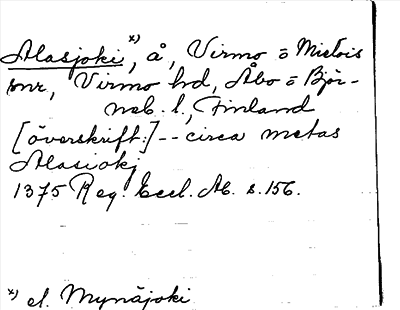 Alasjoki x), å, Virmo o Mietois
snr, Virmo hd, Åbo o Björ-
neb. l., Finland
[överskrift:] -- circa metas
Alasiokj
1375 Reg. Eccl. Ab. s. 156.
x) el. Mynäjoki